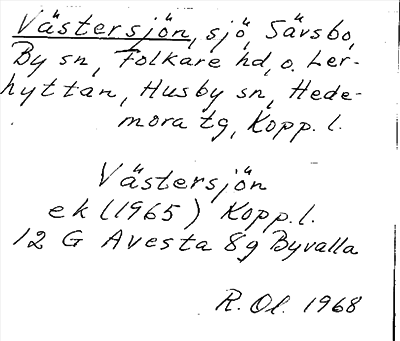 Västersjön, sjö, Sävsbo,
By sn, Folkare hd, o. Ler-
hyttan, Husby sn, Hede-
mora tg, Kopp. l.
Västersjön
ek (1965) Kopp. l.
12 G Avesta 8g Byvalla
R. Ol. 1968